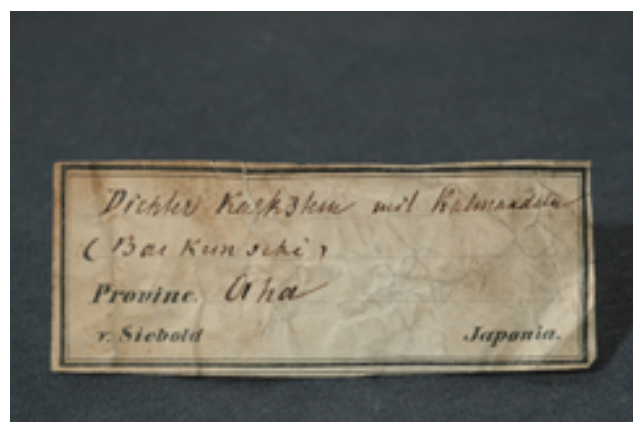 Dichter Kalkstein mit
(Bai Kun seki)
Provinc. Awa
v. Siebold Japonia.